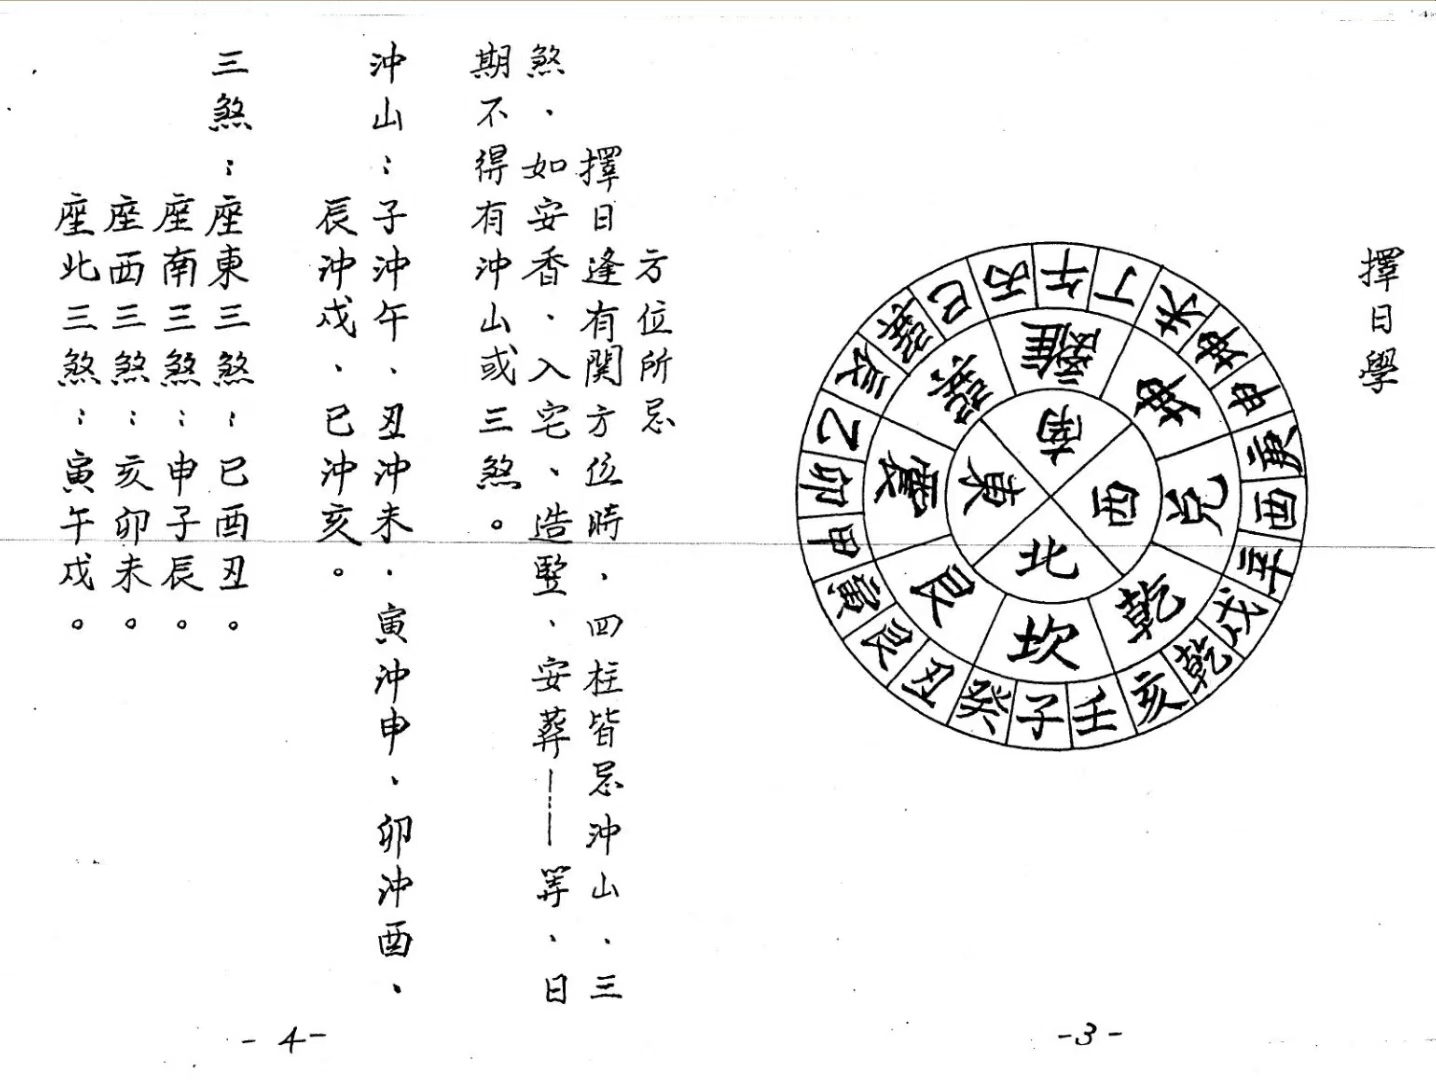 擇日學
午
丁
未
坤
申
庚
酉
辛
戌
乾
亥
壬
子
癸
丑
艮
寅
甲
卯
乙
辰
巽
巳
丙
離
坤
兌
乾
坎
艮
震
巽
南
西
北
東
-3-
方位所忌
擇日逢有関方位時、四柱皆忌沖山、三
煞、如安香、入宅、造竪、安葬——等、日
期不得有沖山或三煞。
沖山：子沖午、丑沖未、寅沖申、卯沖酉、
辰沖戌、巳沖亥。
三煞：座東三煞：巳酉丑。
座南三煞：申子辰。
座西三煞：亥卯未。
座北三煞：寅午戌。
-4-